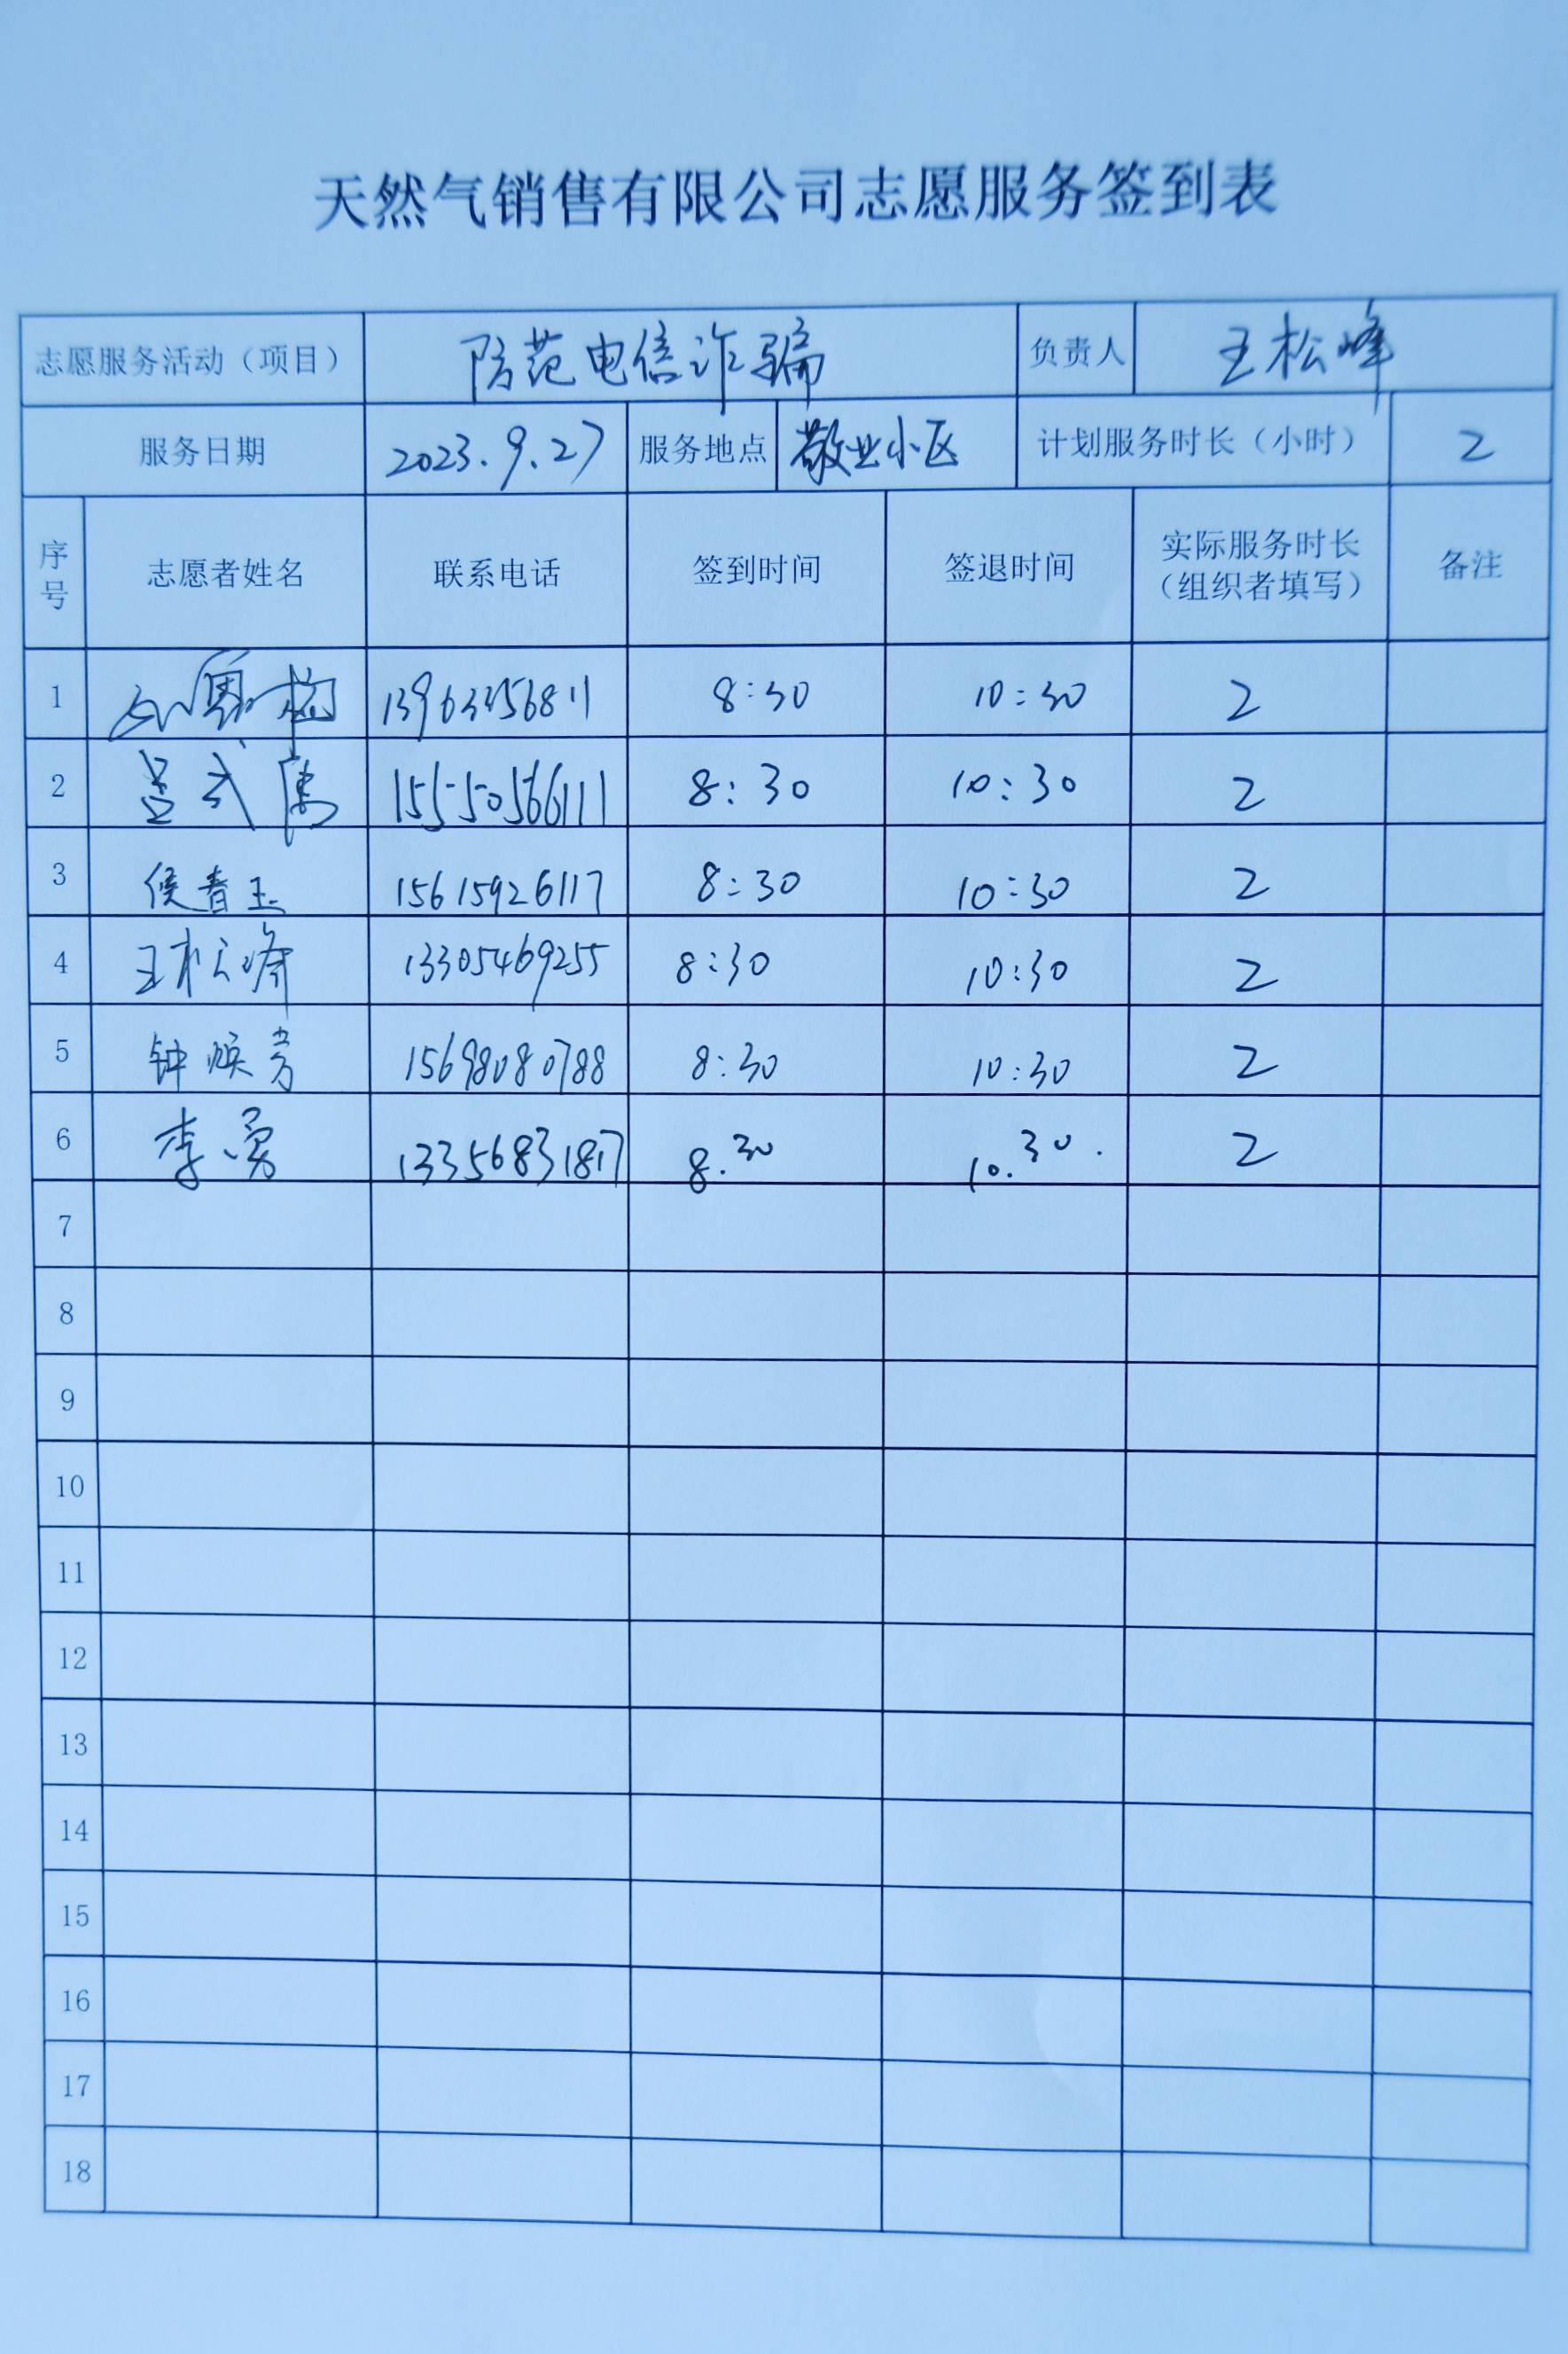 天然气销售有限公司志愿服务签到表
志愿服务活动（项目） 防范电信诈骗 负责人 王松峰
服务日期 2023.9.27 服务地点 敬业小区 计划服务时长（小时） 2
序号 志愿者姓名 联系电话 签到时间 签退时间 实际服务时长（组织者填写） 备注
1 8:30 10:30 2
2 吕式 15550566111 8:30 10:30 2
3 侯春玉 15615926117 8:30 10:30 2
4 王松峰 13305469255 8:30 10:30 2
5 钟焕芳 15698080788 8:30 10:30 2
6 李勇 13356831817 8.30 10.30. 2
7
8
9
10
11
12
13
14
15
16
17
18